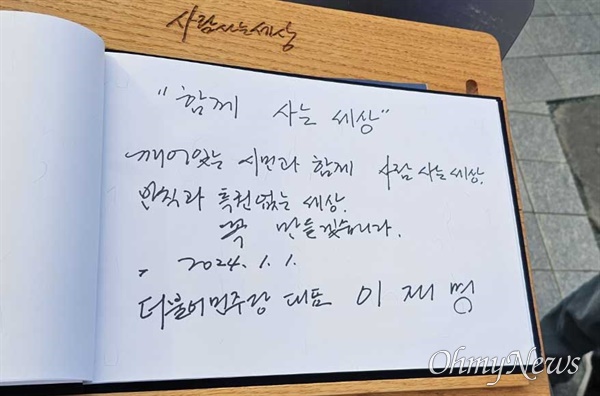 사람사는세상
"함께 사는 세상"
깨어있는 시민과 함께 사람 사는 세상,
반칙과 특권없는 세상.
꼭 만들겠습니다.
2024. 1. 1.
더불어민주당 대표 이재명
OhmyNews